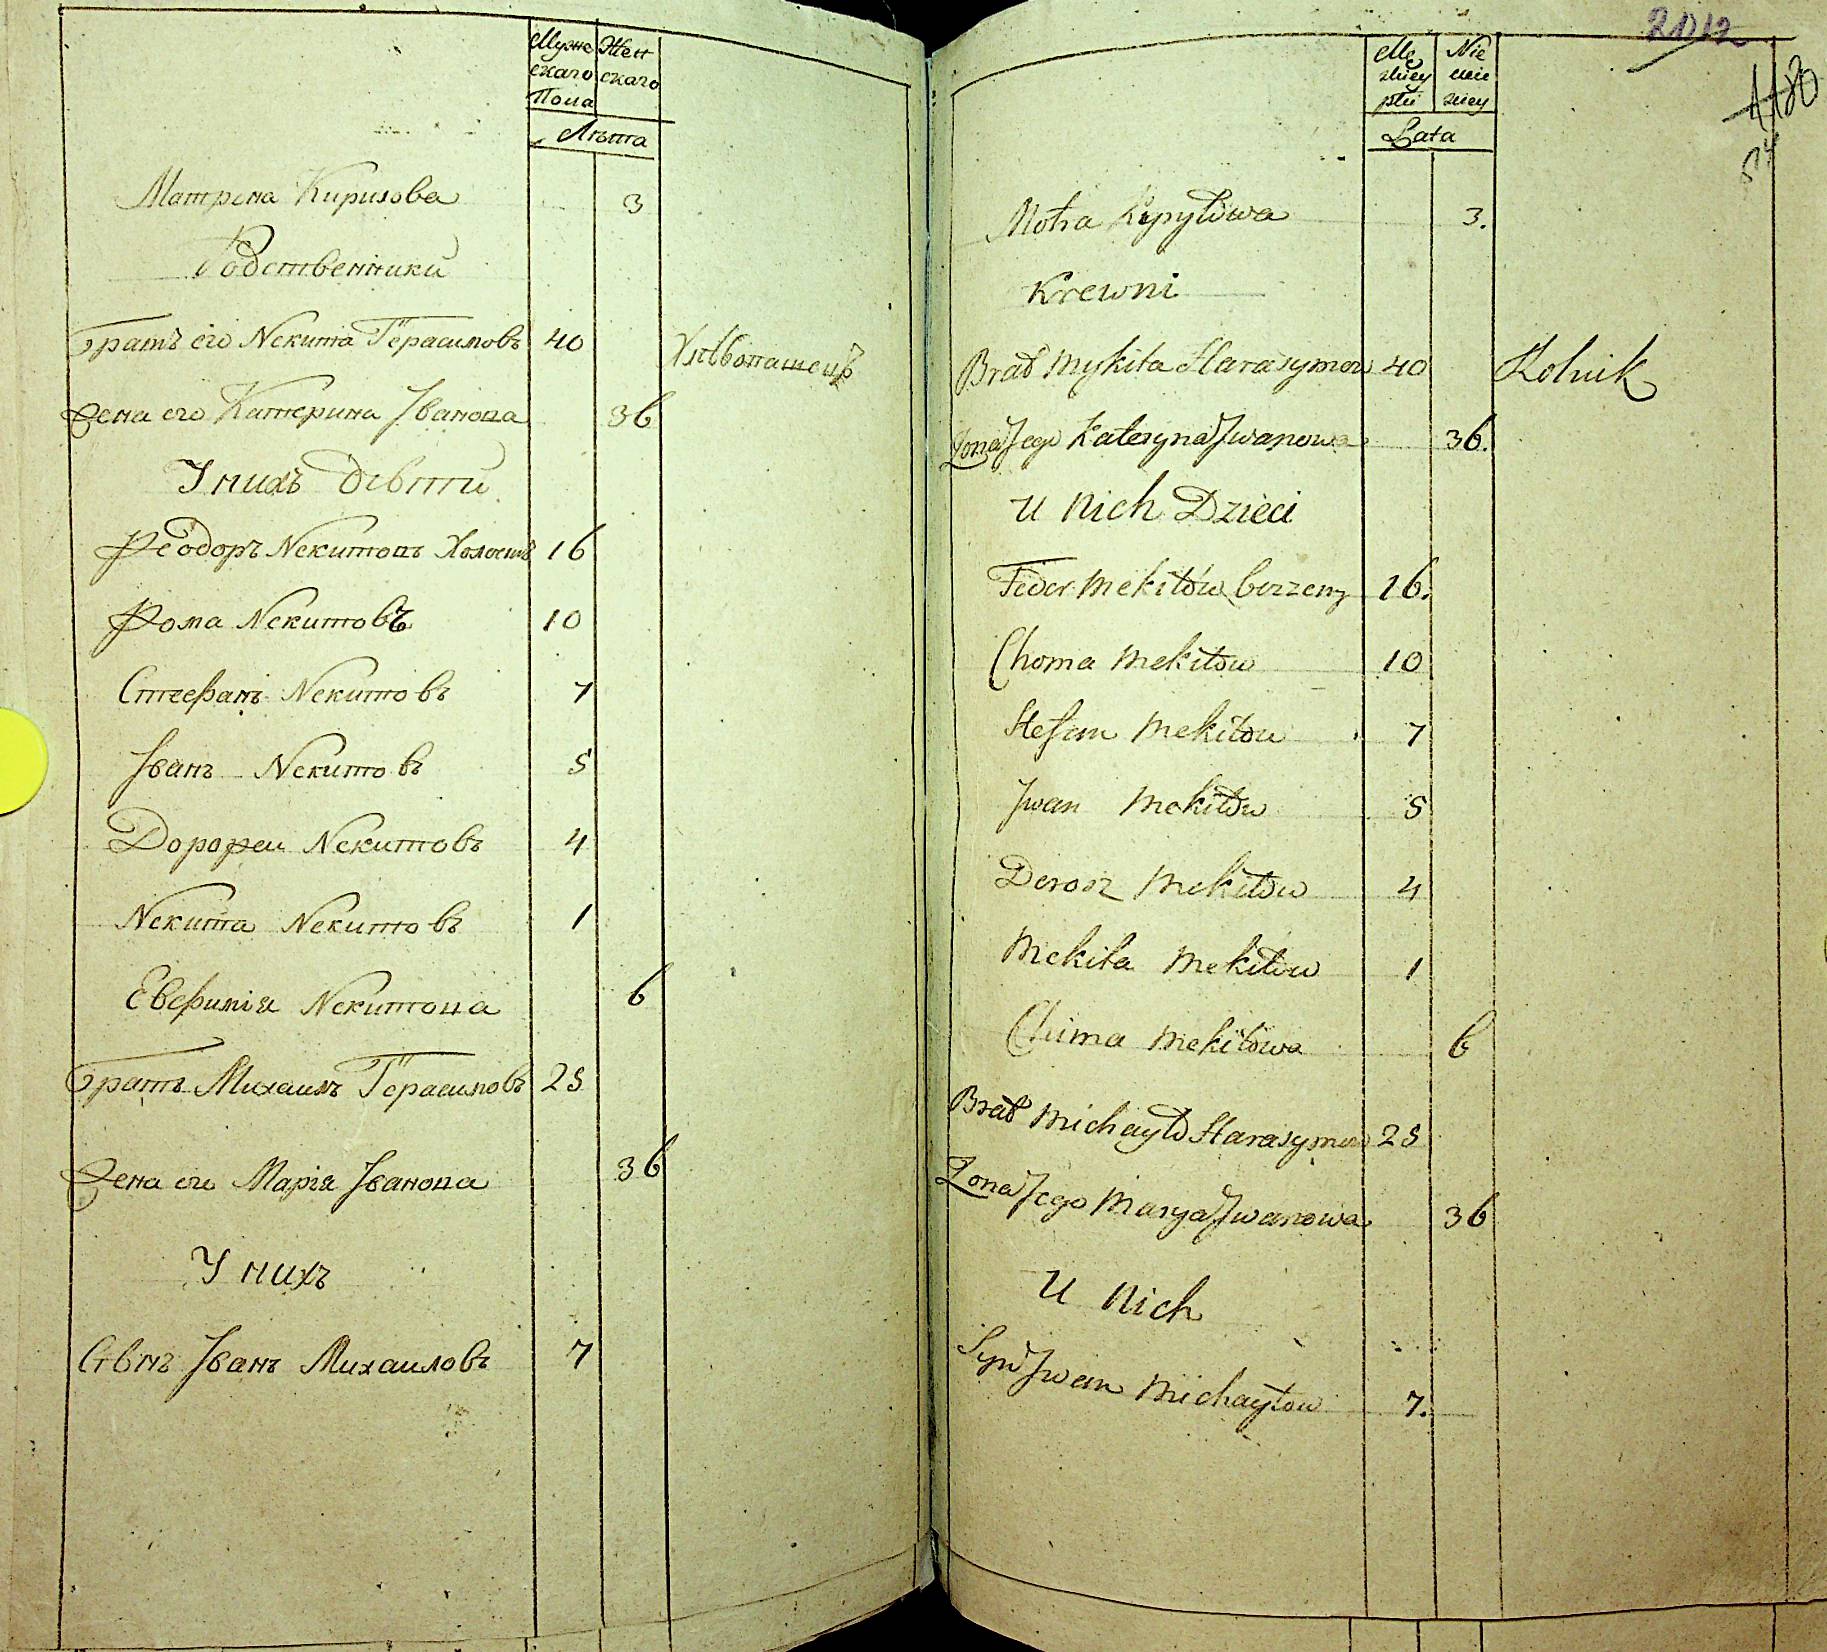 Муже Жен
скаго скаго
Пола
Лѣта
Матрена Кирилова 3
Родственники
Братъ его Некита Герасимовъ 40 Хлѣбопашецъ
Жена его Катерина Іванова 36
У нихъ дѣти
Феодоръ Некитовъ Холостъ 16
Фома Некитовъ 10
Стефанъ Некитовъ 7
Іванъ Некитовъ 5
Дорофеи Некитовъ 4
Некита Некитовъ 1
Евефимія Некитова 6
Братъ Михаилъ Герасимовъ 25
Жена его Марія Іванова 36
У нихъ
Сынъ Іванъ Михаиловъ 7
2012
1180
54
Lata
Motra Kyryłowa 3.
Krewni
Brat Mykita Harasymow 40 Rolnik
Żona Jego Kateryna Iwanowa 36.
U Nich Dzieci
Fedor Mekitów 16.
Choma Mekitow 10
Stefan Mekitow 7
Iwan Mekitow 5
Dorosz Mekitow 4
Mekita Mekitow 1
Chima Mekitowa 6
Brat Michayło Harasymow 25
Żona Jego Marya Iwanowa 36
U Nich
Syn Iwan Michayłow 7.